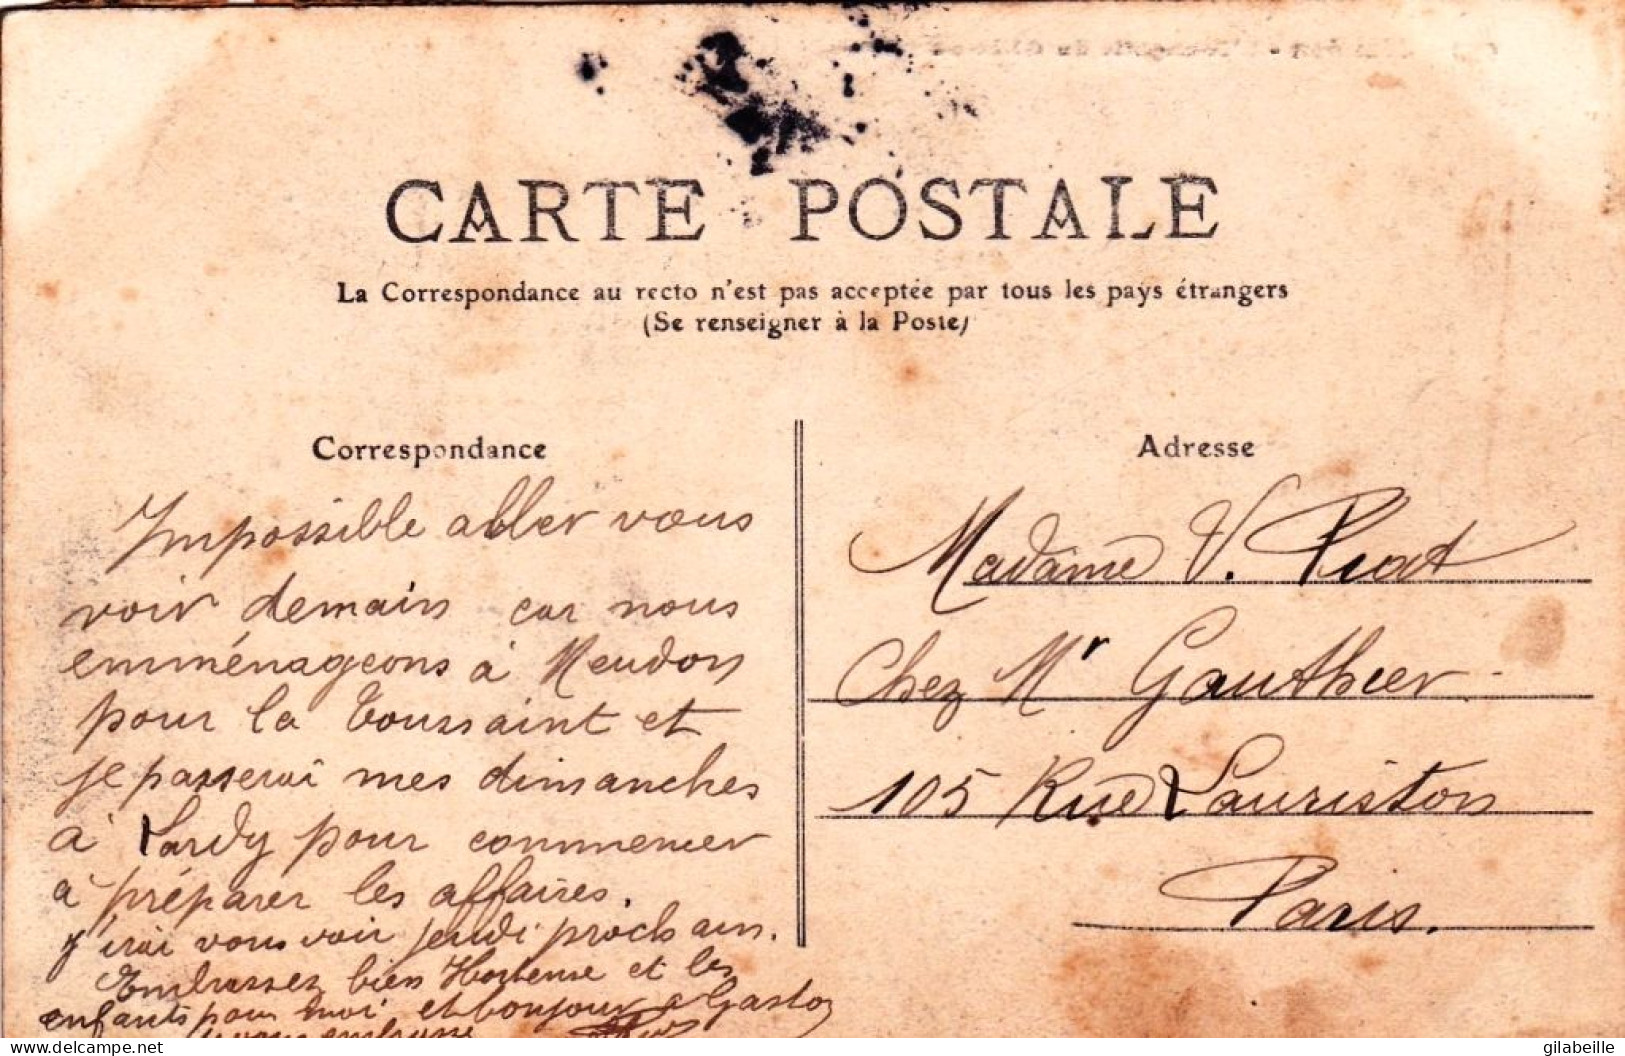 CARTE POSTALE
La Correspondance au recto n'est pas acceptée par tous les pays étrangers
(Se renseigner à la Poste)
Correspondance
Impossible aller vous
voir demain car nous
emménageons à Meudon
pour la Toussaint et
je passerai mes dimanches
à Lardy pour commencer
à préparer les affaires.
J'irai vous voir jeudi prochain.
Embrassez bien Hortense et les
enfants pour moi et bonjour a Gaston
Je vous embrasse
Adresse
Madame V. Piat
Chez Mr Gauthier
105 Rue Lauriston
Paris.
delcampe.net
gilabeille